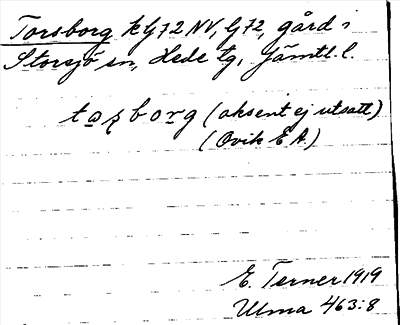 Torsborg kfj 72 NV, fj 72, gård i
Storsjö sn, Hede tg, Jämtl. l.
tas̨borg (aksent ej utsatt)
(Ovik E A.)
E. Terner 1919
Ulma 463:8